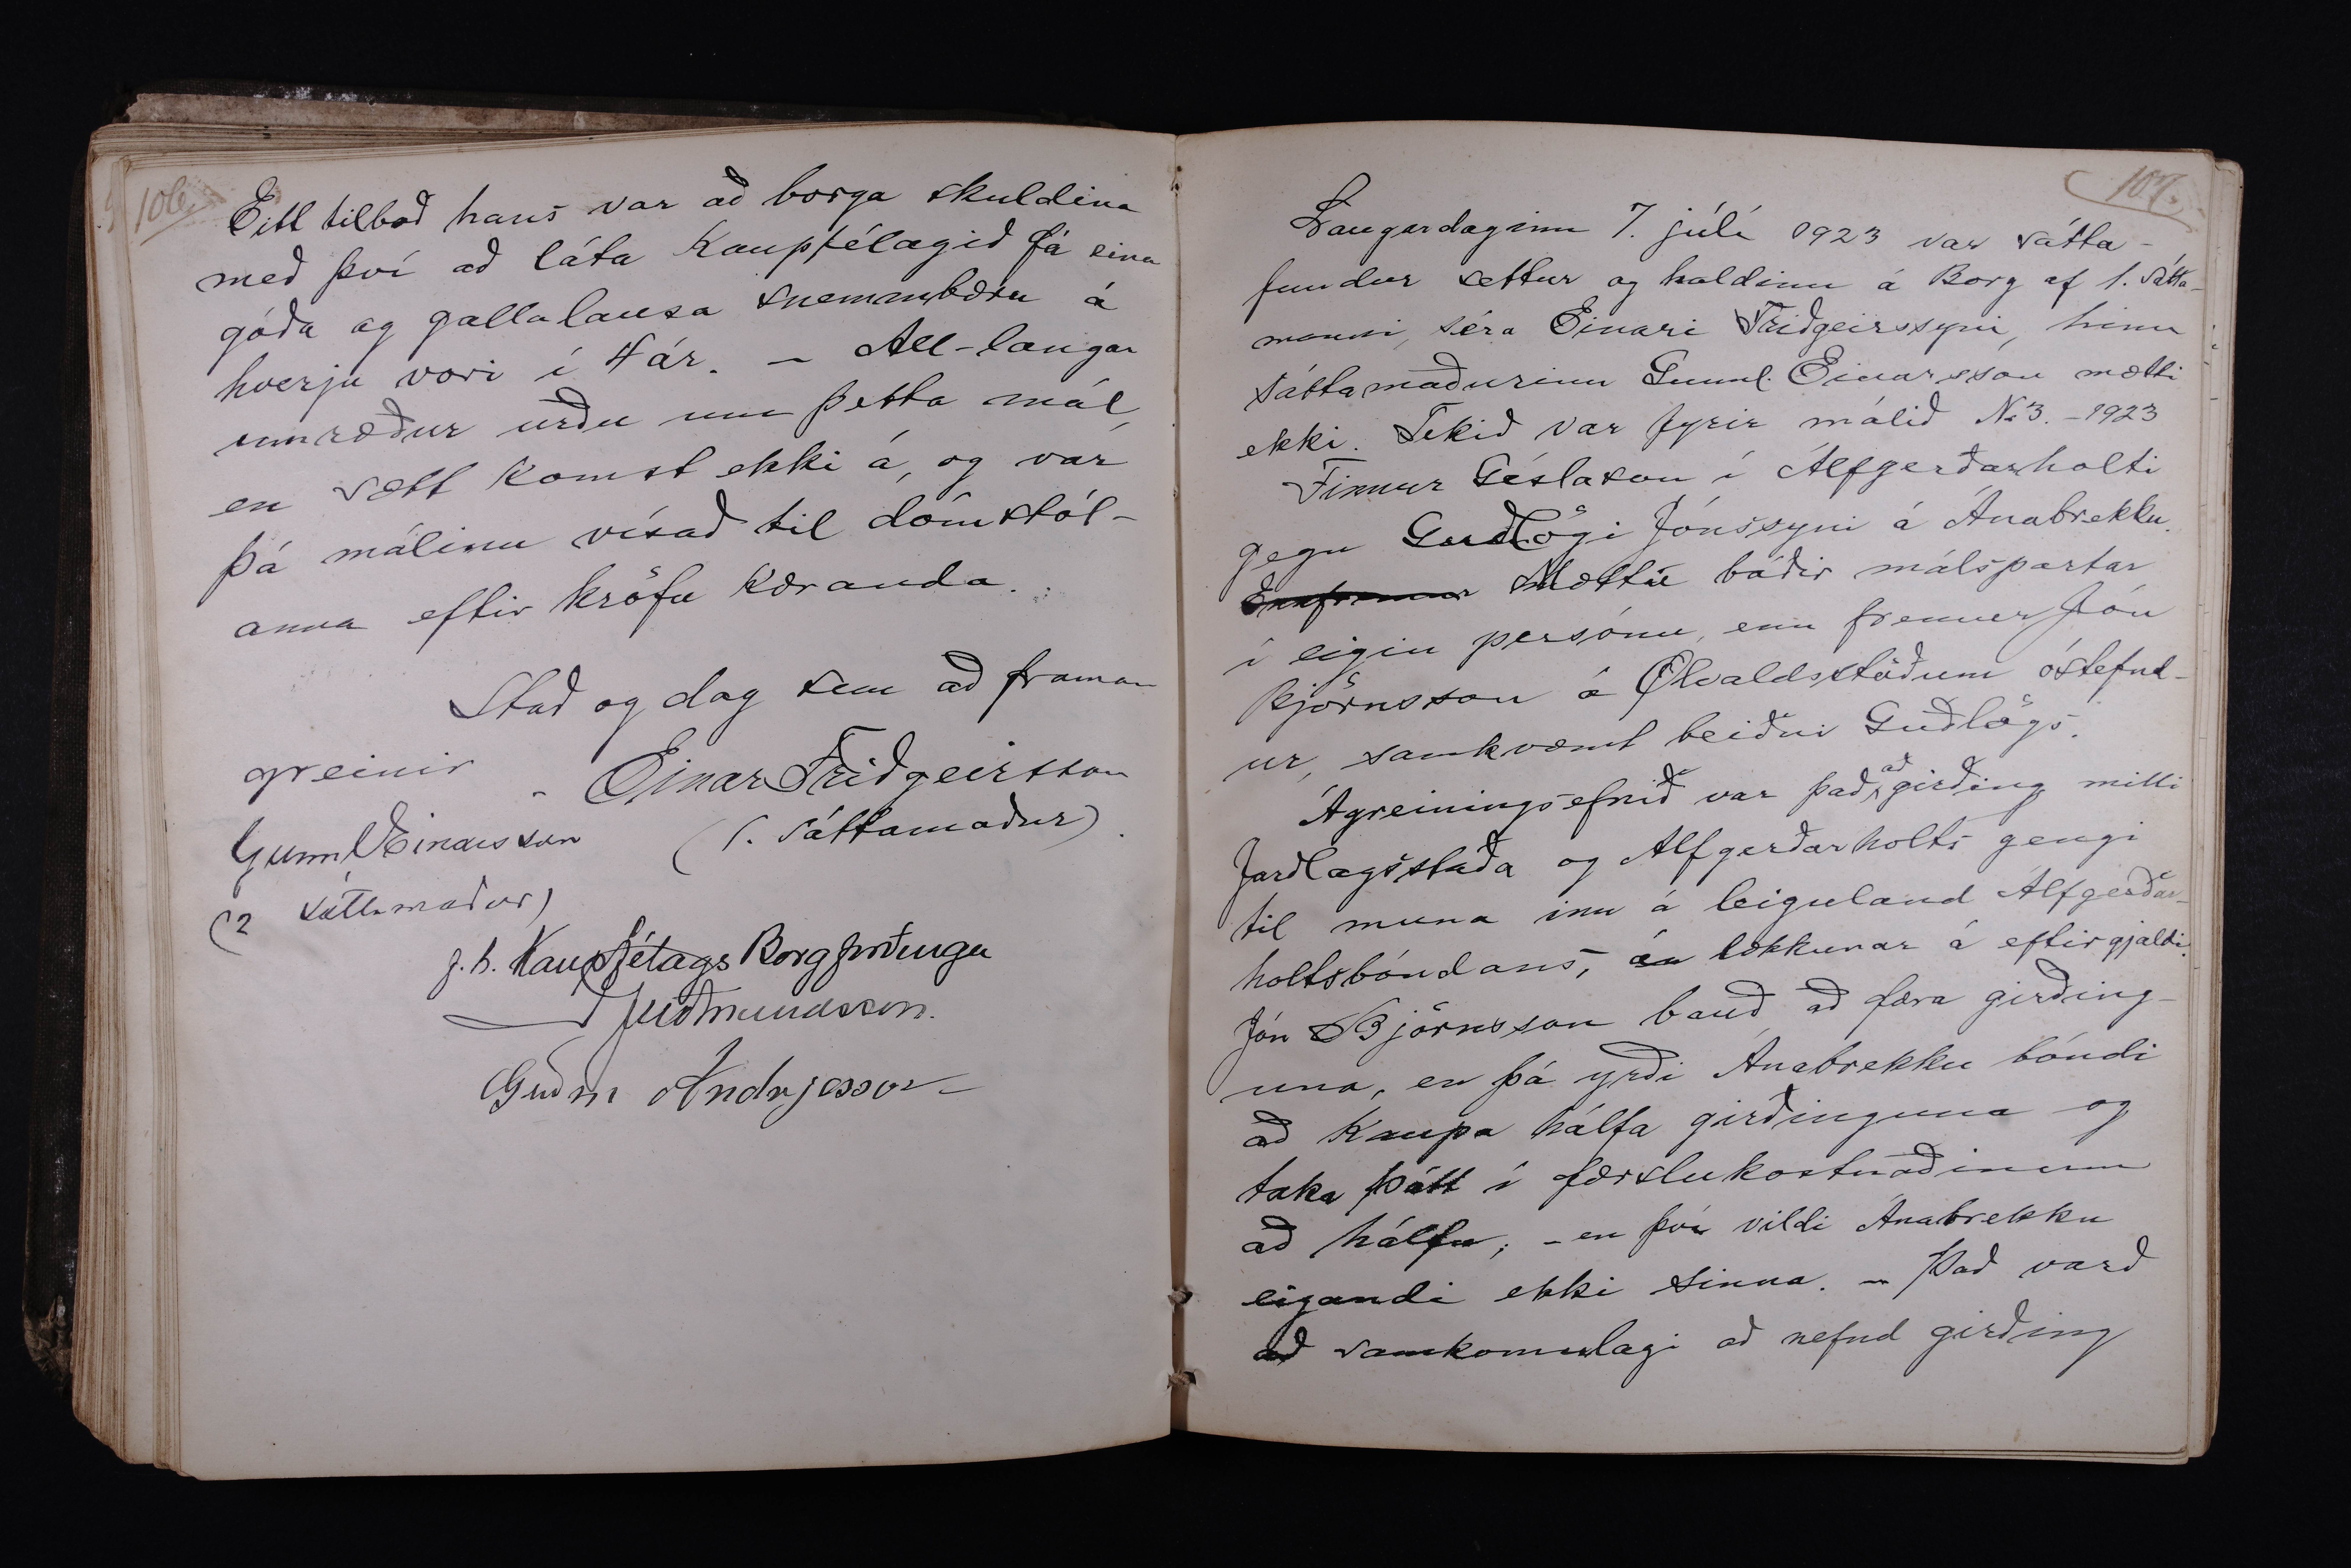 106.
Eitt tilboð hans var að borga skuldina
með því að láta Kaupfélagið fá eina
góða og gallalausa snemmbæru á
hverju vori í 4 ár. – All-langar
umræður urðu um þetta mál,
en sætt komst ekki á, og var
þá málinu vísað til dómstól-
anna eftir kröfu kæranda.
Stað og dag sem að framan
greinir
Einar Friðgeirsson
Gunnl Einarsson
(1. sáttamaður).
(2 sáttamaður)
f. h. Kaupfélags Borgfirðinga
Guðmundsson.
Guðm Andrjesson
107.
Laugardaginn 7. júlí 1923 var sátta-
fundur settur og haldinn á Borg af 1. sátta-
manni, séra Einari Friðgeirssyni, hinn
sáttamaðurinn Gunnl. Einarsson mætti
ekki. Tekið var fyrir málið No 3. – 1923
Finnur Gíslason í Álfgerðarholti
gegn Guðlögi Jónssyni á Ánabrekku.
Ennfremur Mættu báðir málspartar
í eigin persónu, enn fremur Jón
Björnsson á Ölvaldsstöðum óstefnd-
ur, samkvæmt beiðni Guðlögs.
Ágreiningsefnið var það, að girðing milli
Jarðlagsstaða og Álfgerðarholts gengi
til muna inn á leiguland Álfgerðar-
holtsbóndans, án lækkunar á eftirgjaldi.
Jón Björnsson bauð að færa girðing-
una, en þá yrði Ánabrekku bóndi
að kaupa hálfa girðinguna og
taka þátt í færslukostnaðinum
að hálfu; – en því vildi Ánabrekku
eigandi ekki sinna. – Það varð
að samkomulagi að nefnd girðing